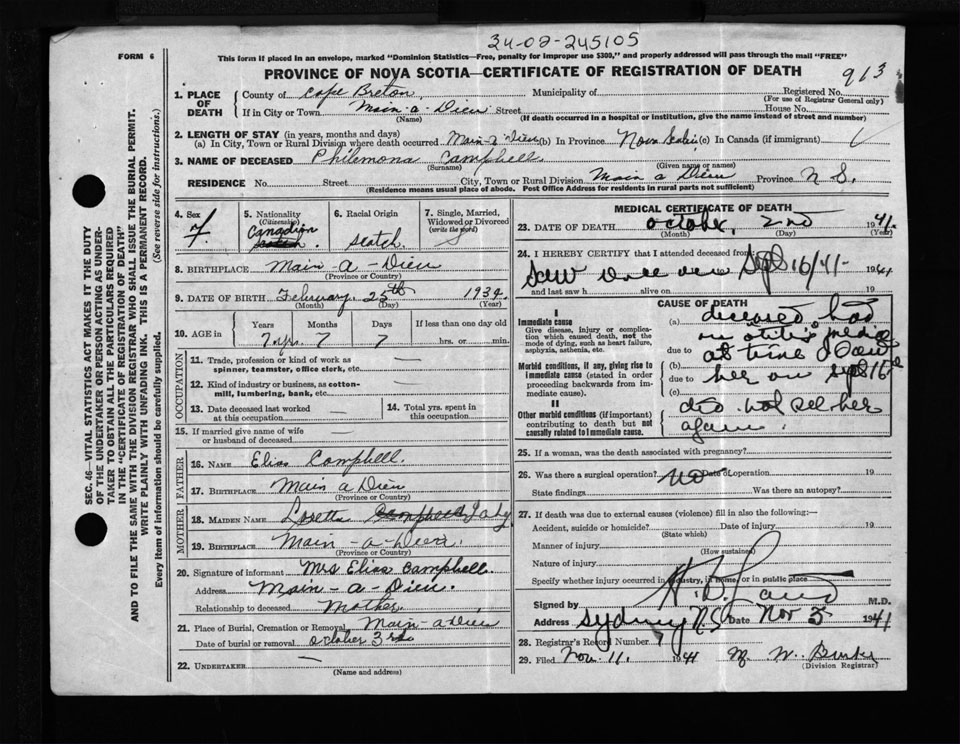 34-02-245105
FORM 6
This form if placed in an envelope, marked "Dominion Statistics—Free, penalty for improper use $300," and properly addressed will pass through the mail "FREE"
PROVINCE OF NOVA SCOTIA—CERTIFICATE OF REGISTRATION OF DEATH
913
1. PLACE OF DEATH
County of Cape Breton Municipality of Registered No.
(For use of Registrar General only)
If in City or Town Main-a-Dieu Street House No.
(Name) (If death occurred in a hospital or institution, give the name instead of street and number)
2. LENGTH OF STAY (in years, months and days)
(a) In City, Town or Rural Division where death occurred Main-a-Dieu (b) In Province Nova Scotia (c) In Canada (if immigrant)
3. NAME OF DECEASED Philemona Campbell
(Surname) (Given name or names)
RESIDENCE No. Street City, Town or Rural Division Main a Dieu Province N S.
(Residence means usual place of abode. Post Office Address for residents in rural parts not sufficient)
4. Sex F.
5. Nationality (Citizenship) Canadian
6. Racial Origin Scotch
7. Single, Married, Widowed or Divorced (write the word) S
8. BIRTHPLACE Main-a-Dieu
(Province or Country)
9. DATE OF BIRTH February 25th 1934.
(Month) (Day) (Year)
10. AGE in
Years Months Days If less than one day old
7 yrs. 7 7 hrs. or min.
OCCUPATION
11. Trade, profession or kind of work as spinner, teamster, office clerk, etc. —
12. Kind of industry or business, as cotton-mill, lumbering, bank, etc. —
13. Date deceased last worked at this occupation —
14. Total yrs. spent in this occupation.
15. If married give name of wife or husband of deceased —
FATHER
16. NAME Elias Campbell.
17. BIRTHPLACE Main a Dieu
(Province or Country)
MOTHER
18. MAIDEN NAME Loretta
19. BIRTHPLACE Main-a-Dieu.
(Province or Country)
20. Signature of informant Mrs Elias Campbell.
Address Main-a-Dieu.
Relationship to deceased Mother
21. Place of Burial, Cremation or Removal Main-a-Dieu
Date of burial or removal October 3rd
22. UNDERTAKER —
(Name and address)
MEDICAL CERTIFICATE OF DEATH
23. DATE OF DEATH October, 2nd 1941.
(Month) (Day) (Year)
24. I HEREBY CERTIFY that I attended deceased from
Saw once on Sept 16/41- 1941
and last saw h alive on 19
CAUSE OF DEATH
I
Immediate cause
Give disease, injury or complication which caused death, not the mode of dying, such as heart failure, asphyxia, asthenia, etc.
Morbid conditions, if any, giving rise to immediate cause (stated in order proceeding backwards from immediate cause).
II
Other morbid conditions (if important) contributing to death but not causally related to immediate cause.
(a) deceased had
an otitis media
due to
(b) at time I saw
due to her on Sept 16th
(c)
did not see her
again.
25. If a woman, was the death associated with pregnancy?
26. Was there a surgical operation? no Date of operation 19
State findings Was there an autopsy?
27. If death was due to external causes (violence) fill in also the following:—
Accident, suicide or homicide? Date of injury 19
(State which)
Manner of injury
(How sustained)
Nature of injury
Specify whether injury occurred in industry, in home, or in public place
Signed by M.D.
Address Sydney N.S. Date Nov 5 1941
28. Registrar's Record Number 7
29. Filed Nov. 11. 1941 M. W. Burke
(Division Registrar)
SEC. 46—VITAL STATISTICS ACT MAKES IT THE DUTY
OF THE UNDERTAKER OR PERSON ACTING AS UNDERTAKER
TO OBTAIN ALL THE PARTICULARS REQUIRED
IN THE "CERTIFICATE OF REGISTRATION OF DEATH"
AND TO FILE THE SAME WITH THE DIVISION REGISTRAR WHO SHALL ISSUE THE BURIAL PERMIT.
WRITE PLAINLY WITH UNFADING INK. THIS IS A PERMANENT RECORD.
Every item of information should be carefully supplied. (See reverse side for instructions.)